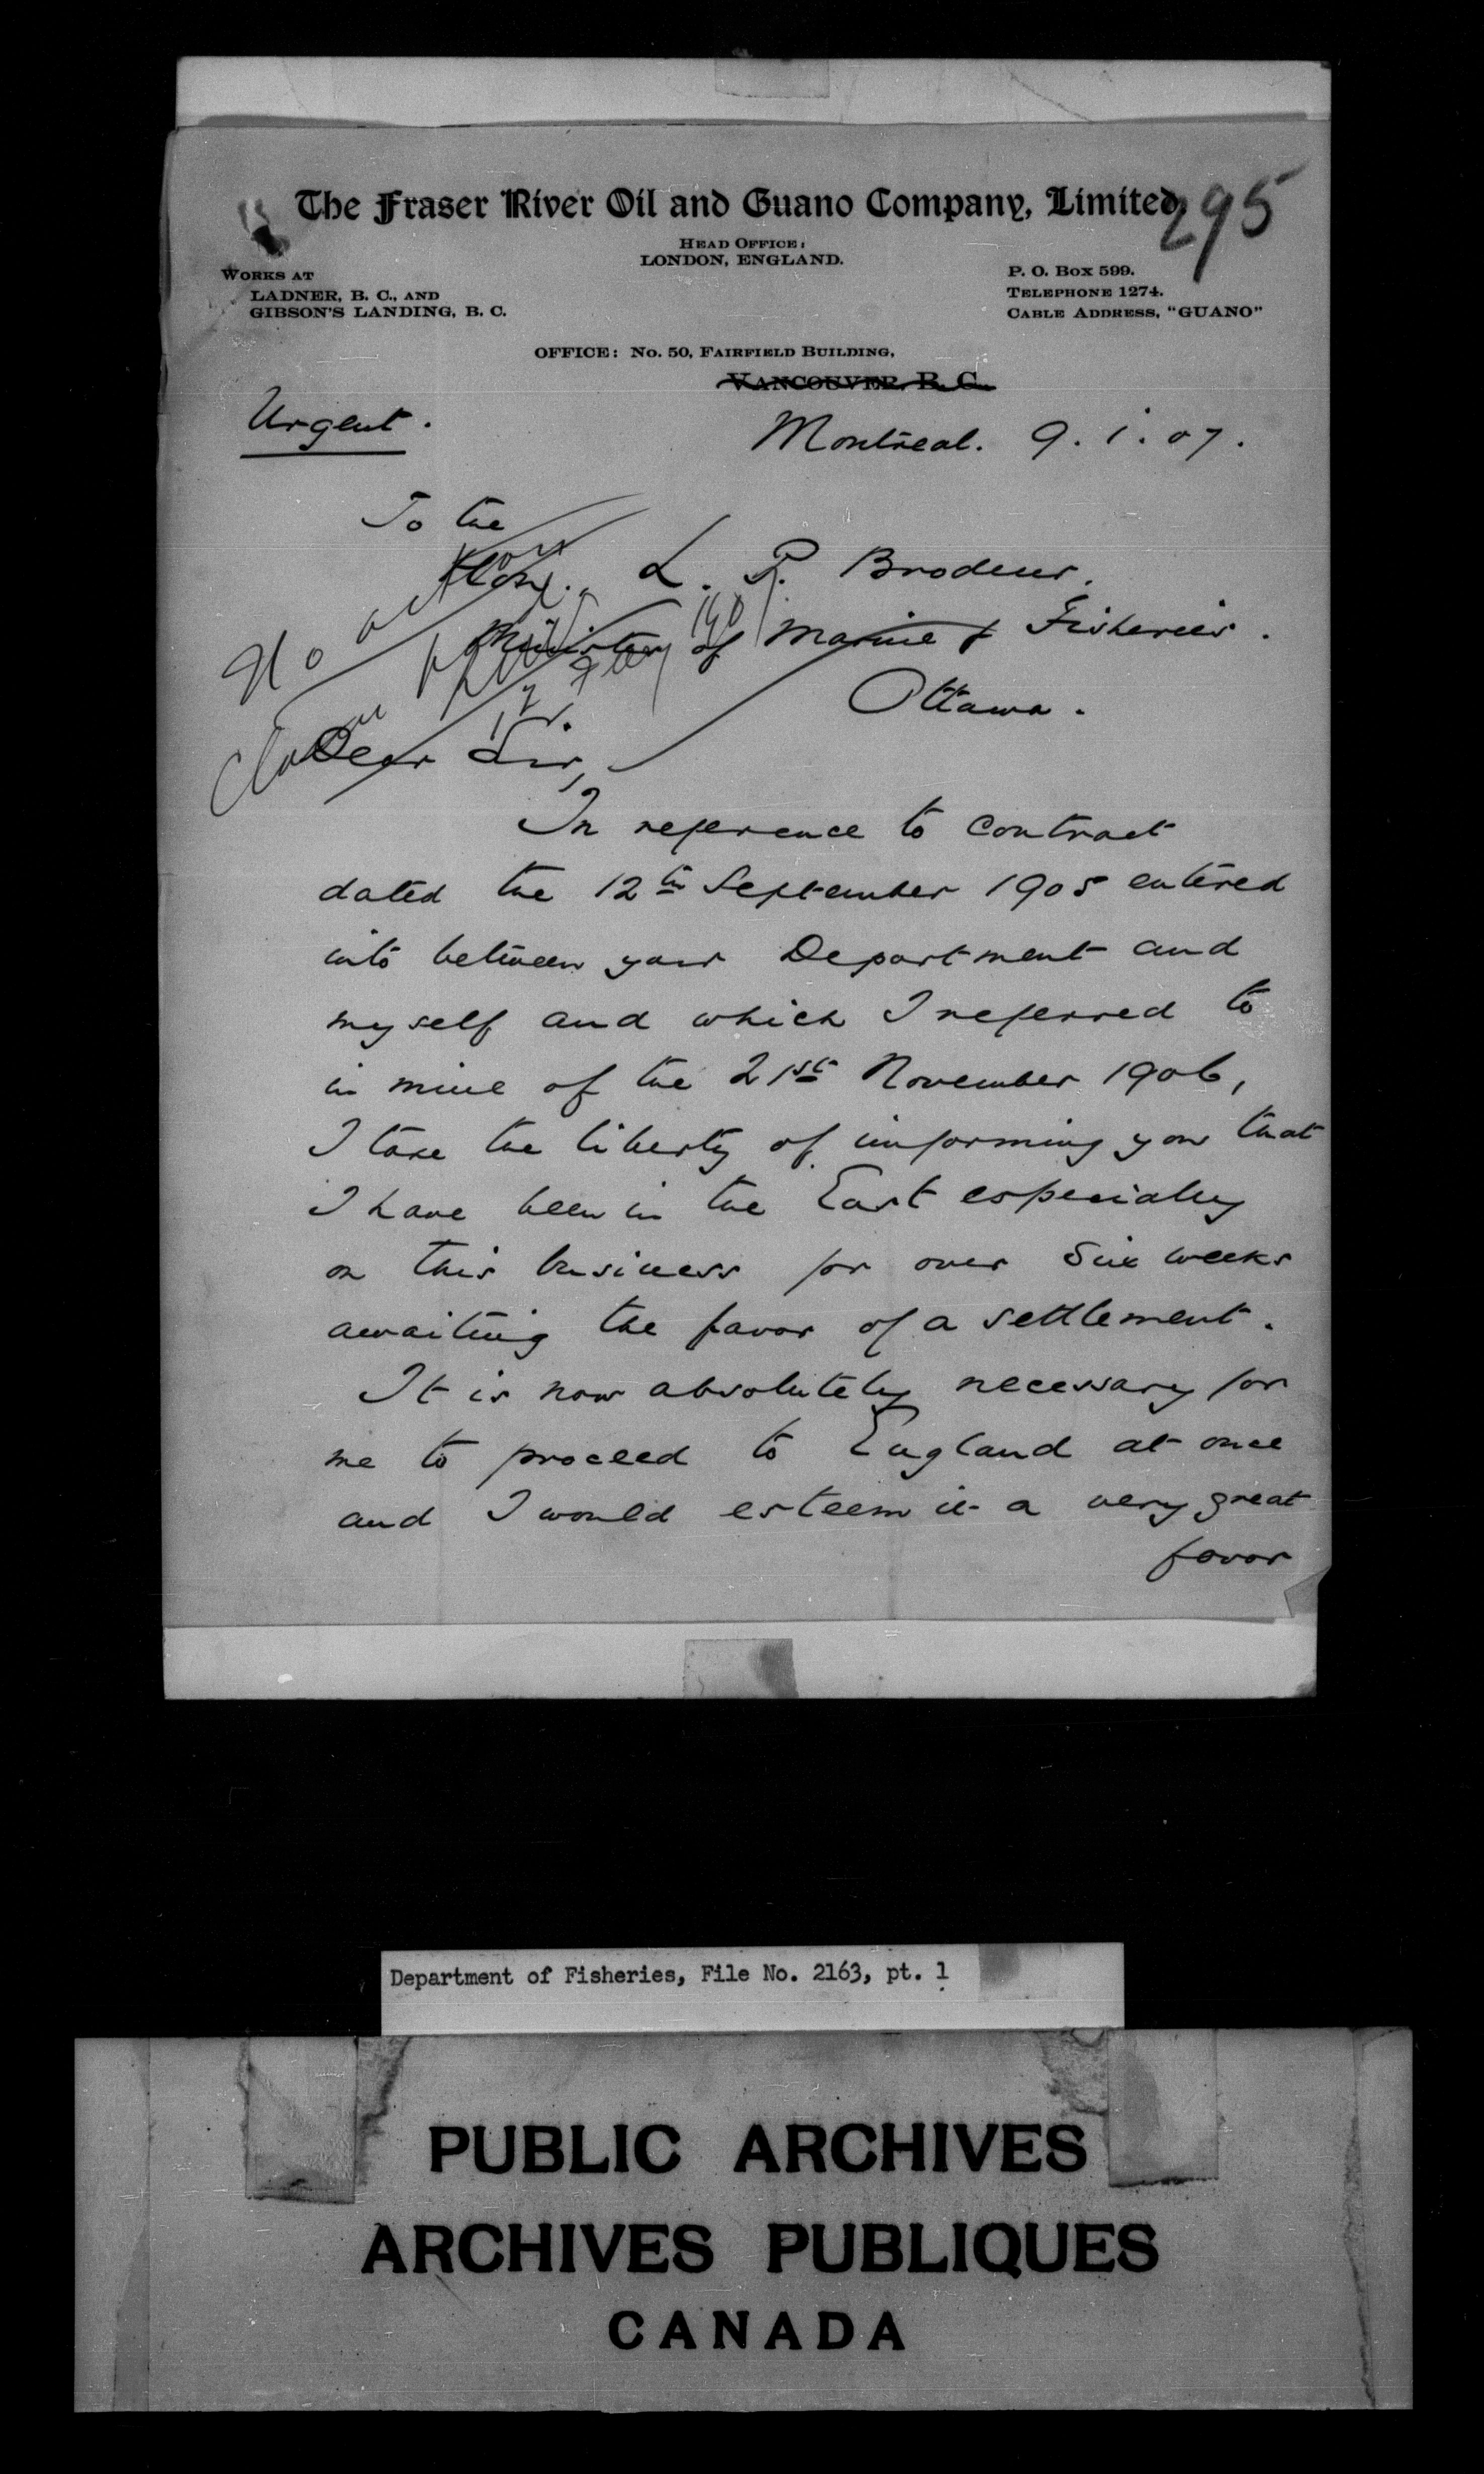 The Fraser River Oil and Guano Company, Limited,
295
HEAD OFFICE:
LONDON, ENGLAND.
WORKS AT
LADNER, B. C., AND
GIBSON'S LANDING, B. C.
P. O. Box 599.
TELEPHONE 1274.
CABLE ADDRESS, "GUANO"
OFFICE: No. 50, FAIRFIELD BUILDING,
VANCOUVER, B. C.
Urgent.
Montreal. 9. 1. 07.
To the
Hon. L. P. Brodeur.
Minister of Marine & Fisheries.
Ottawa.
No
Dear Sir,
In reference to contract
dated the 12th September 1905 entered
into between your Department and
myself and which I referred to
in mine of the 21st November 1906,
I take the liberty of informing you that
I have been in the East especially
on this business for over six weeks
awaiting the favor of a settlement.
It is now absolutely necessary for
me to proceed to England at once
and I would esteem it a very great
favor
Department of Fisheries, File No. 2163, pt. 1
PUBLIC ARCHIVES
ARCHIVES PUBLIQUES
CANADA